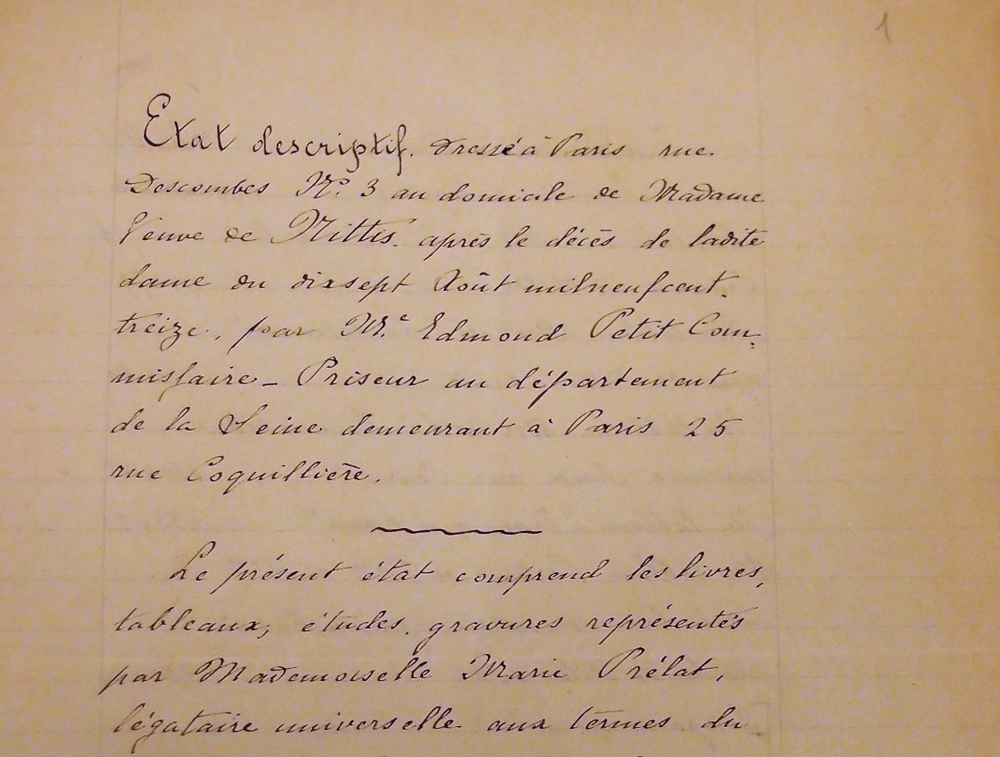 1
Etat descriptif. dressé à Paris rue
Descombes N° 3 au domicile de Madame
Veuve de Nittis. après le décès de ladite
dame du dixsept Août milneufcent.
treize, par Me Edmond Petit Com-
missaire - Priseur au département
de la Seine demeurant à Paris 25
rue Coquillière.
Le présent état comprend les livres,
tableaux, études, gravures représentés
par Mademoiselle Marie Prélat,
légataire universelle aux termes du